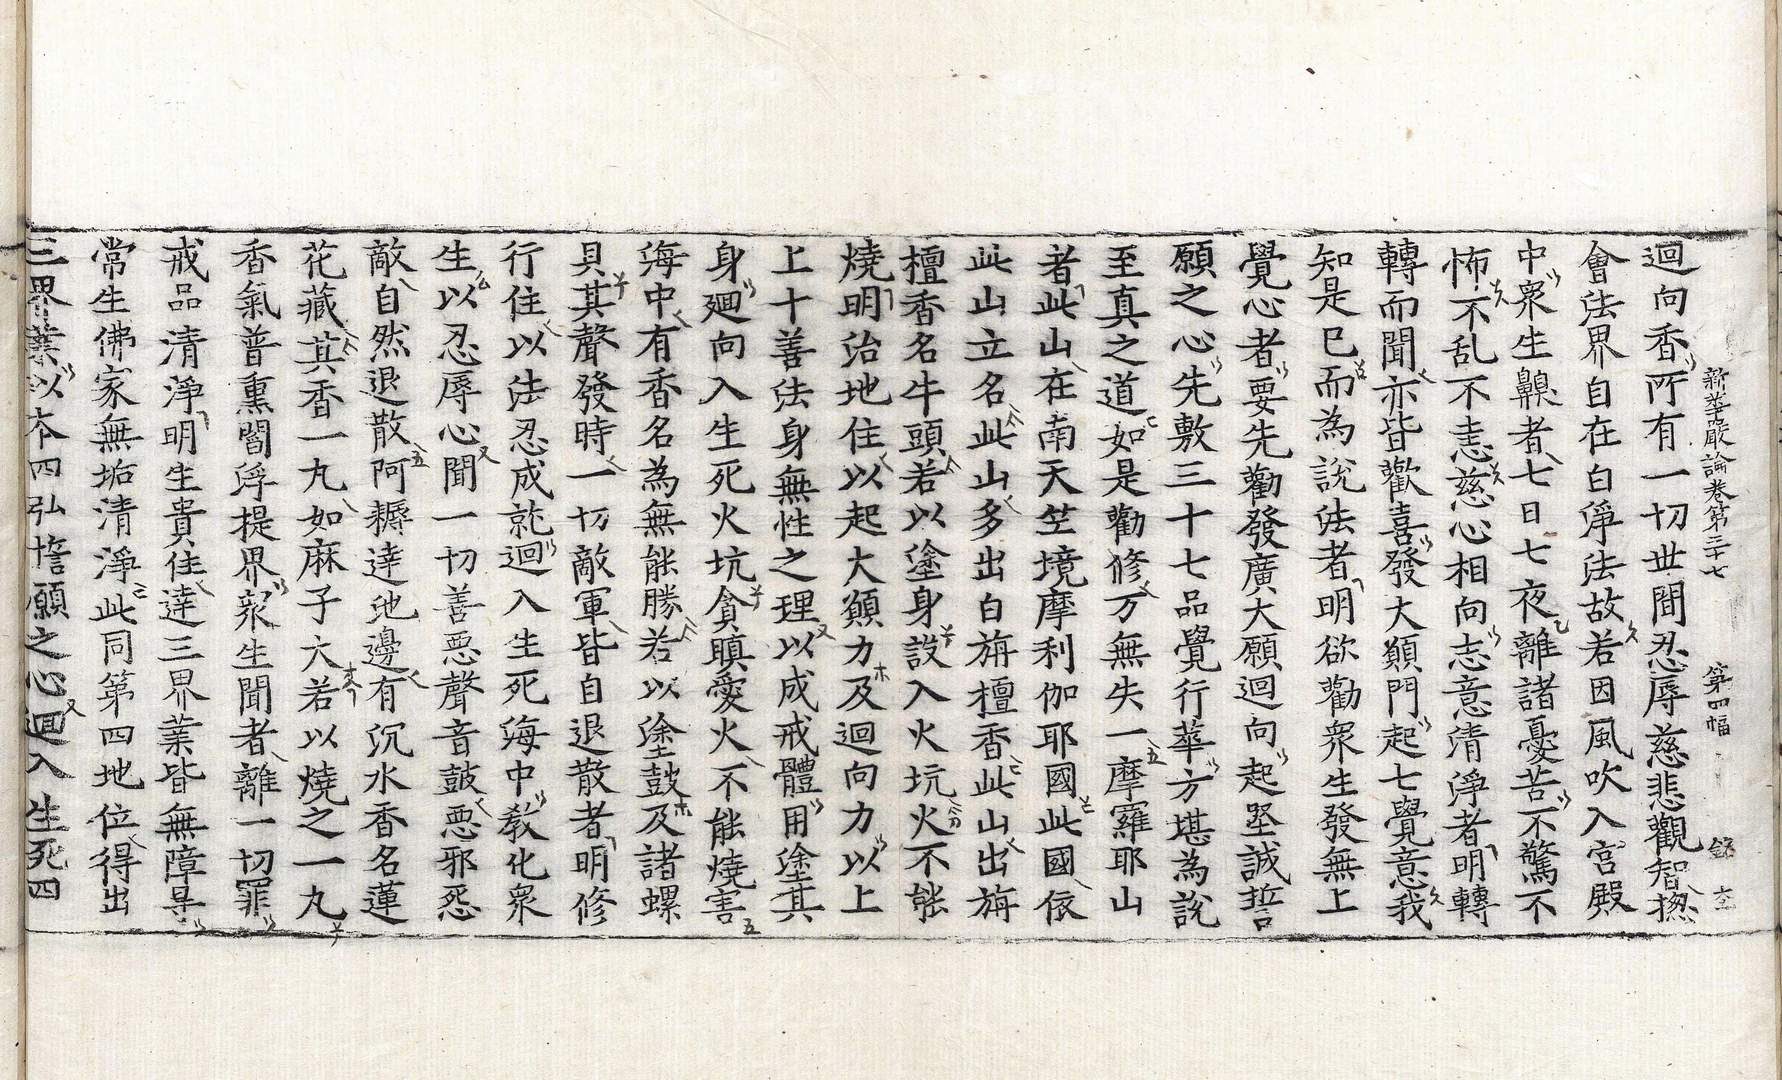 新華嚴論卷第三十七 第四幅
迴向香所有一切世間忍辱慈悲觀智㧾
會法界自在白淨法故若因風吹入宮殿
中衆生齅者七日七夜離諸憂苦不驚不
怖不乱不恚慈心相向志意清淨者明轉
轉而聞亦皆歡喜發大願門起七覺意我
知是已而為說法者明欲勸衆生發無上
覺心者要先勸發廣大願迴向起堅誠誓
願之心先敷三十七品覺行華方堪為說
至真之道如是勸修万無失一摩羅耶山
者此山在南天竺境摩利伽耶國此國依
此山立名此山多出白旃檀香此山出旃
檀香名牛頭若以塗身設入火坑火不能
燒明治地住以起大願力及迴向力以上
上十善法身無性之理以成戒體用塗其
身迴向入生死火坑貪瞋愛火不能燒害
海中有香名為無能勝若以塗鼓及諸螺
具其聲發時一切敵軍皆自退散者明修
行住以法忍成就迴入生死海中教化衆
生以忍辱心聞一切善惡聲音鼓惡邪怨
敵自然退散阿耨達池邊有沉水香名蓮
花藏其香一丸如麻子大若以燒之一丸
香氣普熏閻浮提界衆生聞者離一切罪
戒品清淨明生貴住達三界業皆無障㝵
常生佛家無垢清淨此同第四地位得出
三界業以本四弘誓願之心迴入生死四